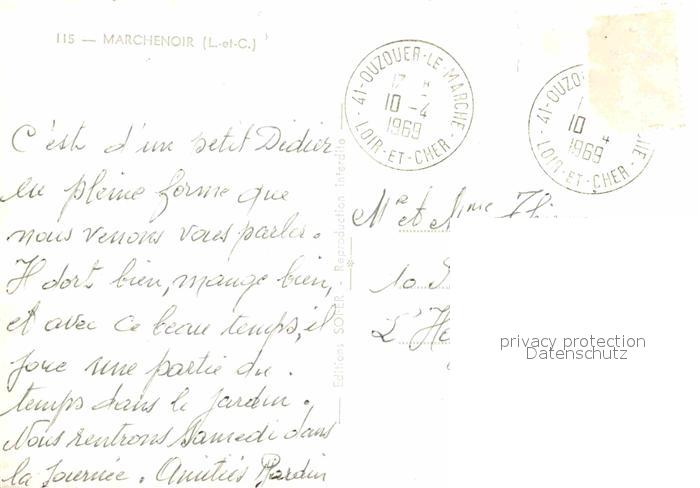 115 — MARCHENOIR (L.-et-C.)
C'est d'un petit Didier
en pleine forme que
nous venons vous parler.
Il dort bien, mange bien,
et avec ce beau temps, il
joue une partie du.
temps dans le jardin.
Nous rentrons Samedi dans
la journée. Amitiés
Editions SOFER - Reproduction Interdite
41-OUZOUER-LE-MARCHE
17 H
10 -4
1969
LOIR-ET-CHER
41-OUZO
10 4
1969
LOIR-ET-CHER
Mr et Mme
10
L'He
privacy protection
Datenschutz